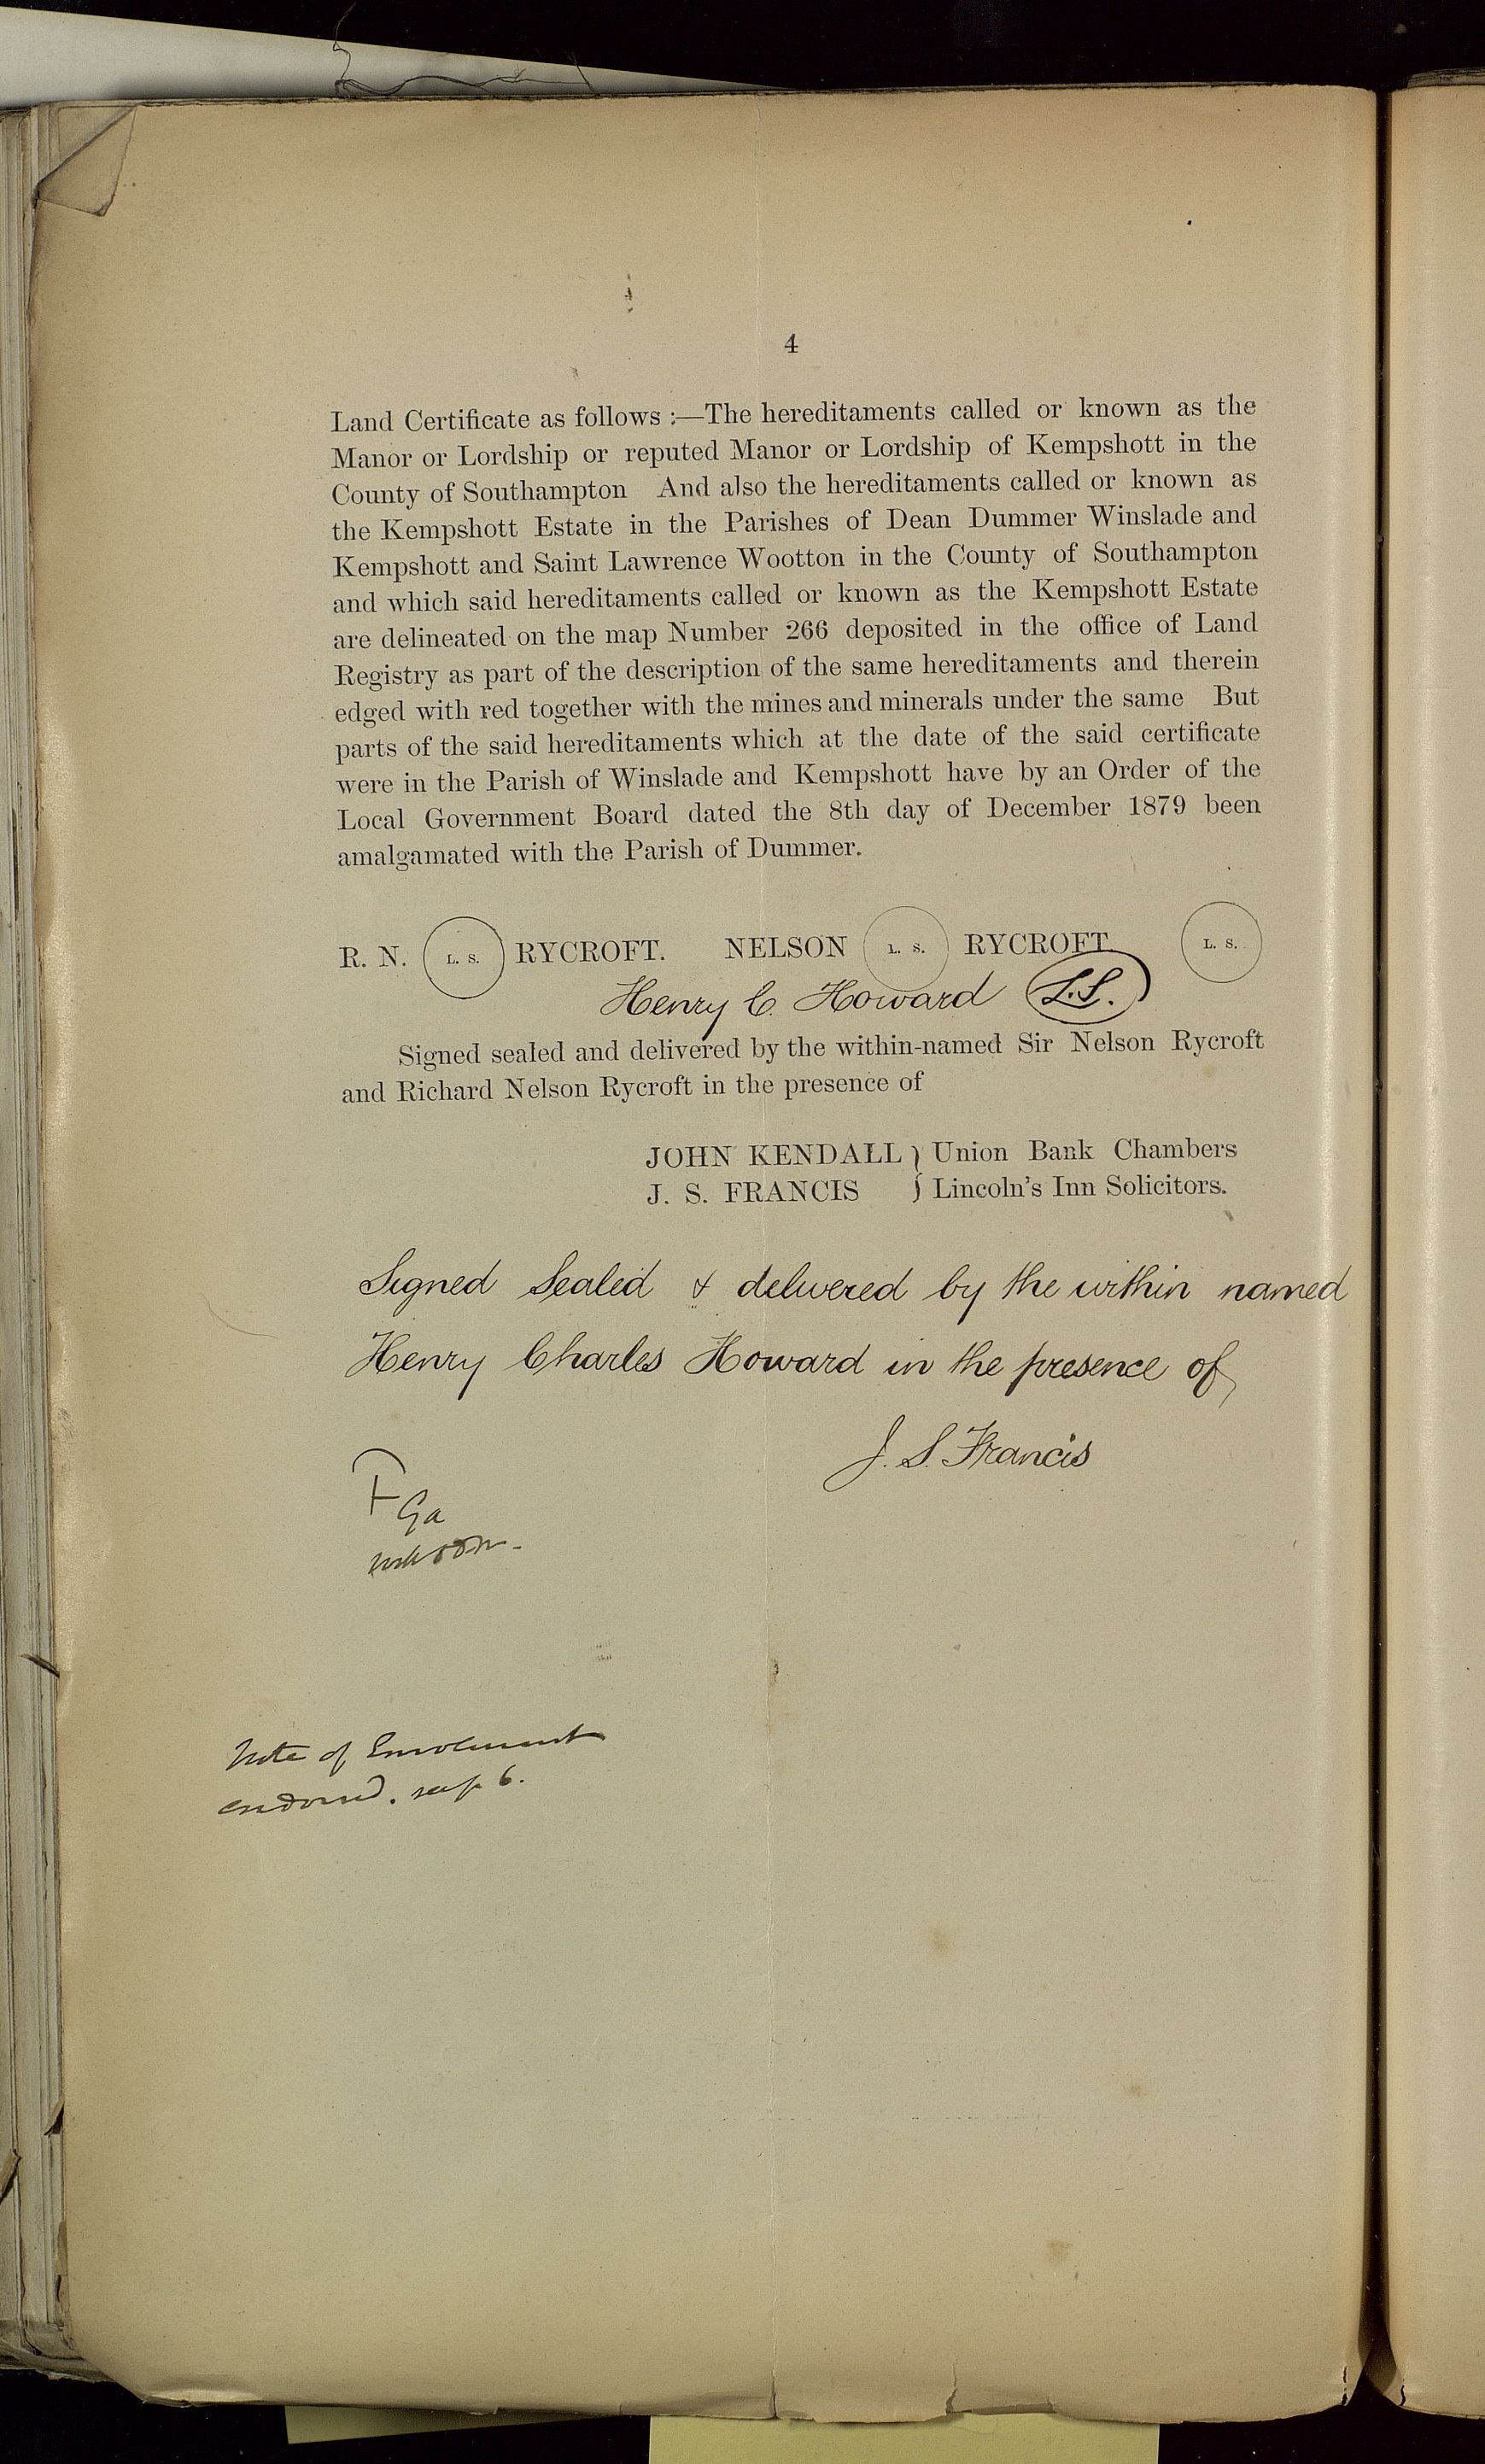 4
Land Certificate as follows :—The hereditaments called or known as the
Manor or Lordship or reputed Manor or Lordship of Kempshott in the
County of Southampton And also the hereditaments called or known as
the Kempshott Estate in the Parishes of Dean Dummer Winslade and
Kempshott and Saint Lawrence Wootton in the County of Southampton
and which said hereditaments called or known as the Kempshott Estate
are delineated on the map Number 266 deposited in the office of Land
Registry as part of the description of the same hereditaments and therein
edged with red together with the mines and minerals under the same But
parts of the said hereditaments which at the date of the said certificate
were in the Parish of Winslade and Kempshott have by an Order of the
Local Government Board dated the 8th day of December 1879 been
amalgamated with the Parish of Dummer.
R. N. L. S. RYCROFT. NELSON L. S. RYCROFT. L. S.
Henry C. Howard L.S.
Signed sealed and delivered by the within-named Sir Nelson Rycroft
and Richard Nelson Rycroft in the presence of
JOHN KENDALL } Union Bank Chambers
J. S. FRANCIS } Lincoln's Inn Solicitors.
Signed Sealed & delivered by the within named
Henry Charles Howard in the presence of
J. S. Francis
Note of Enrolment
endorsed. 6.